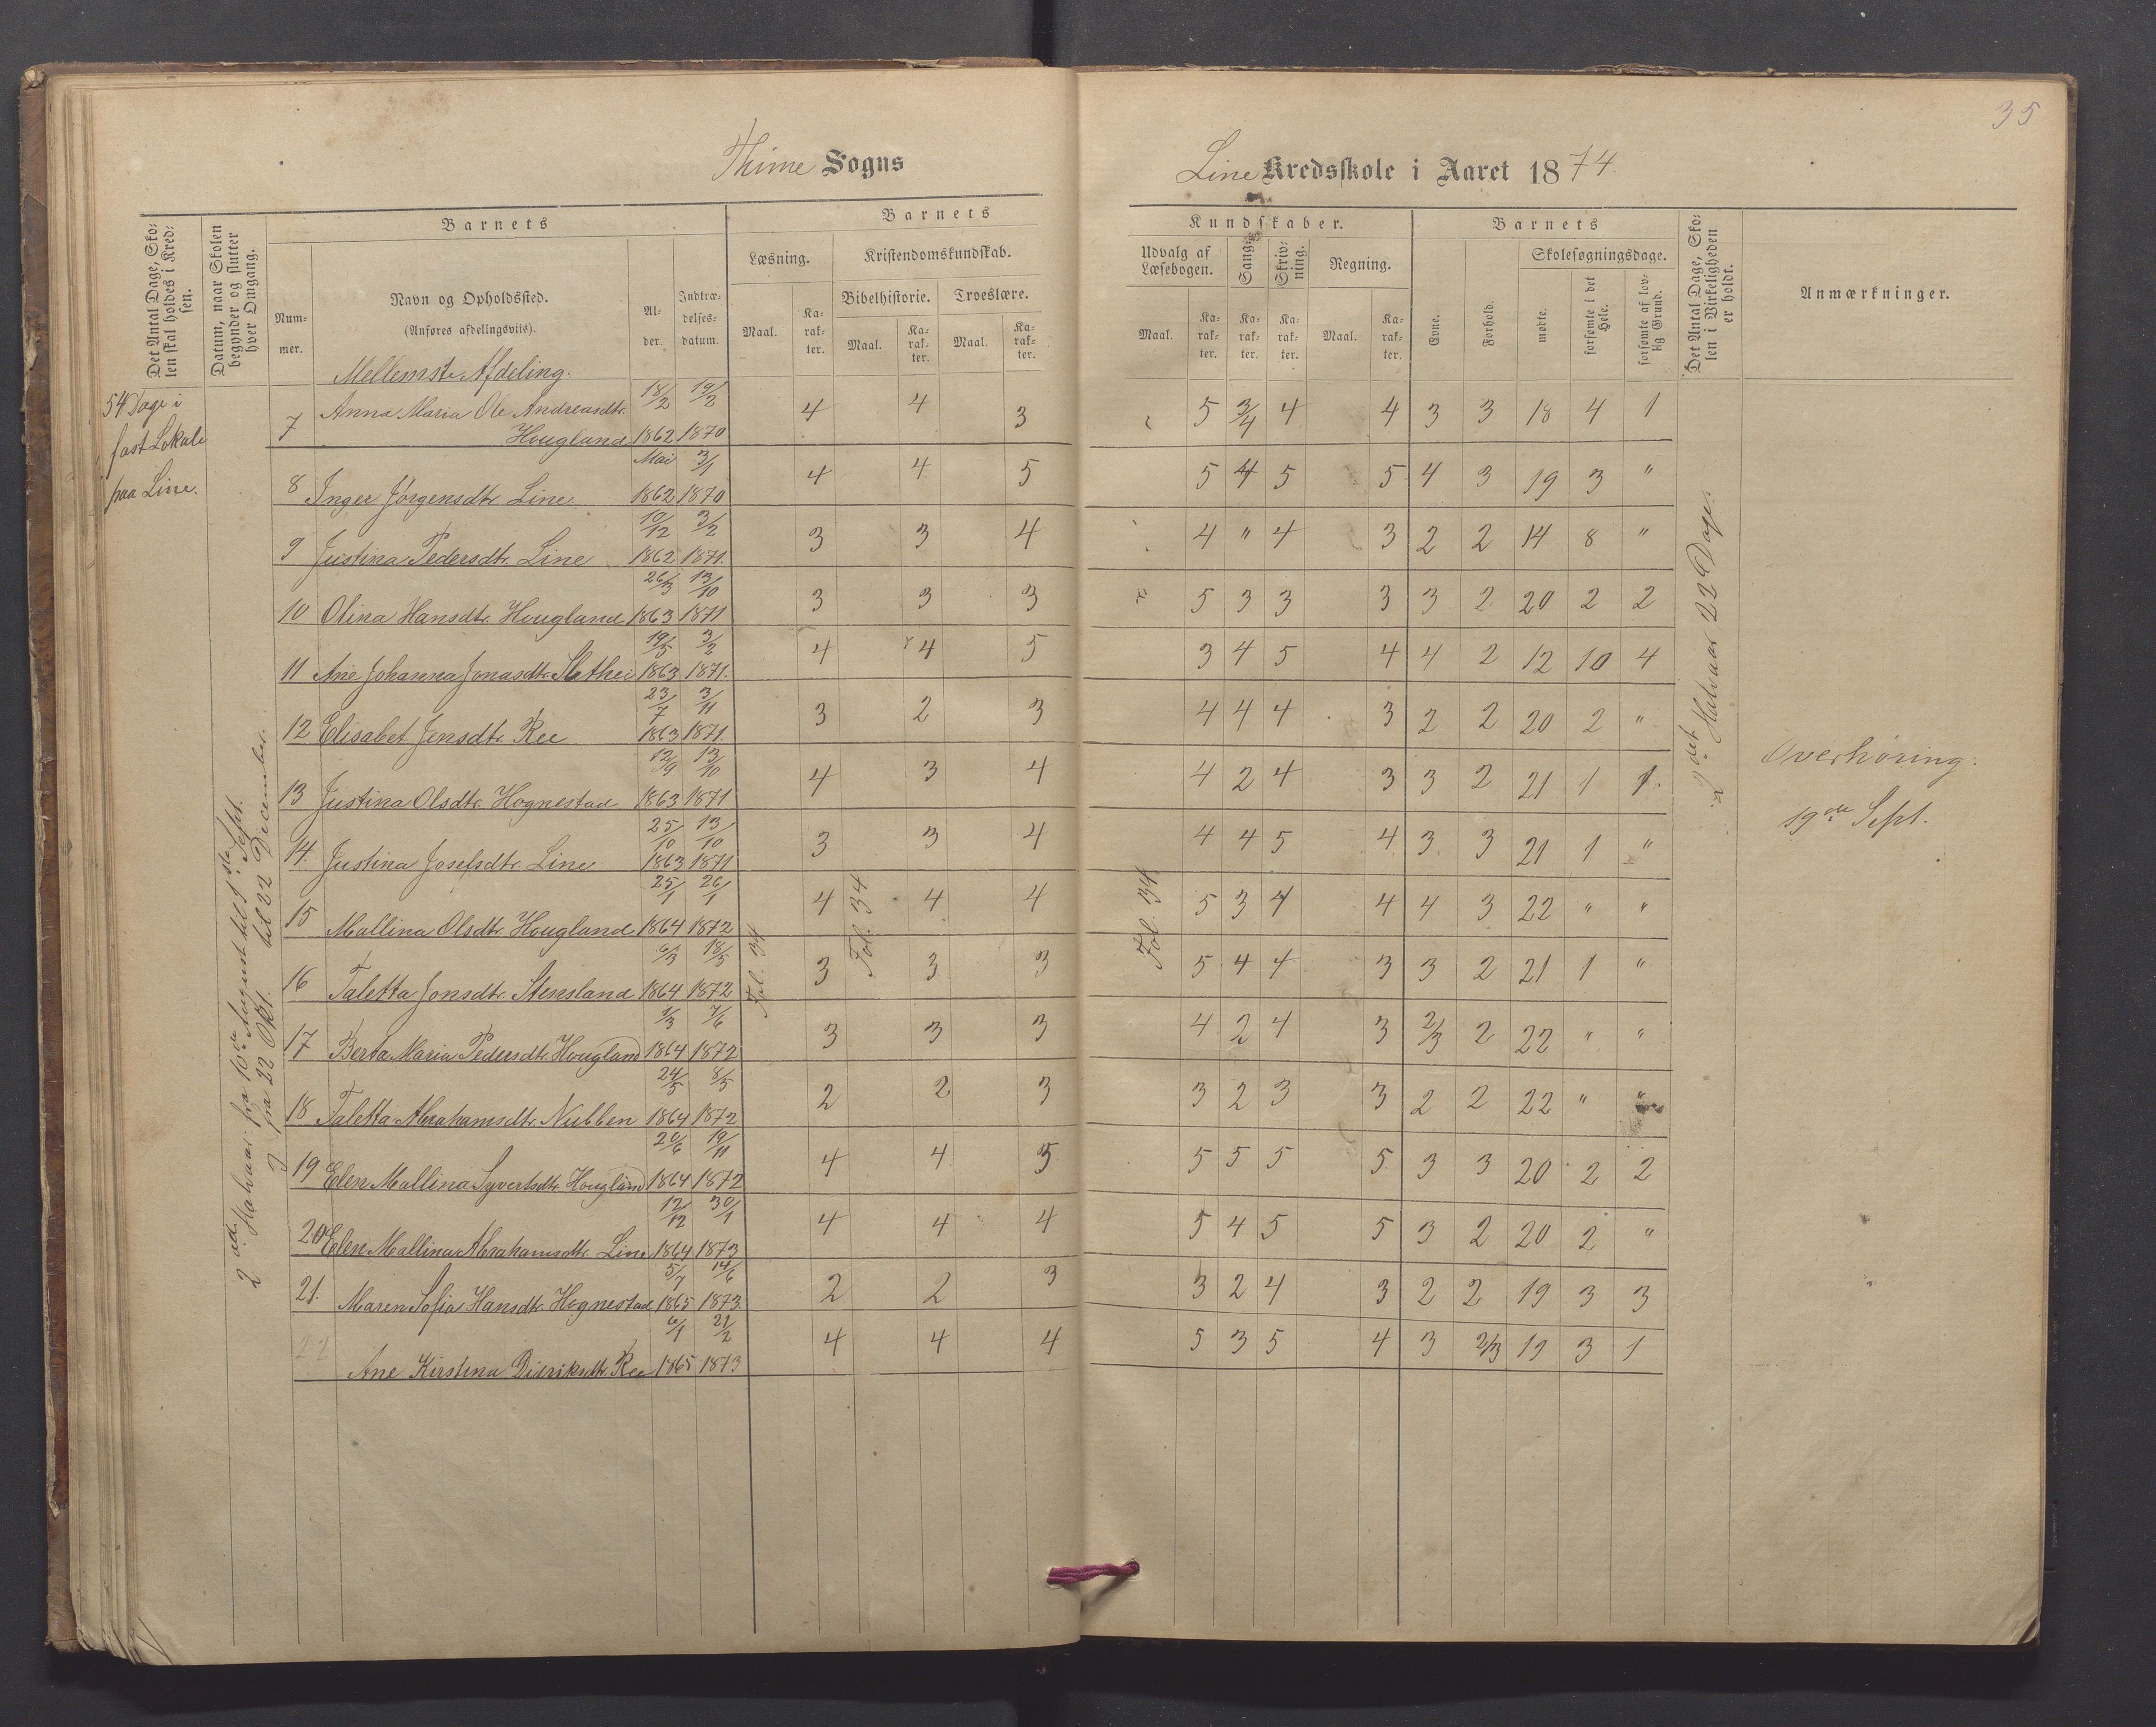 35
Thime Sogns
Line Kredsskole i Aaret 1874.
Det Antal Dage, Sko-
len skal holdes i Kred-
sen.
Datum, naar Skolen
begynder og slutter
hver Omgang.
Barnets
Num-
mer.
Navn og Opholdssted.
(Anføres afdelingsviis).
Al-
der.
Indtræ-
delses-
datum.
Barnets
Læsning.
Kristendomskundskab.
Bibelhistorie. Troeslære.
Maal. Ka-
rak-
ter. Maal. Ka-
rak-
ter. Maal. Ka-
rak-
ter.
Kundskaber.
Udvalg af
Læsebogen.
Sang.
Skriv-
ning.
Regning.
Maal. Ka-
rak-
ter. Ka-
rak-
ter. Ka-
rak-
ter. Maal. Ka-
rak-
ter.
Barnets
Evne.
Forhold.
Skolesøgningsdage.
mødte.
forsømte i det
Hele.
forsømte af lov-
lig Grund.
Det Antal Dage, Sko-
len i Virkeligheden
er holdt.
Anmærkninger.
Mellemste Afdeling.
54 Dage i
fast Lokale
paa Line.
2det Halvaar: fra 10de August til 1ste Sept.
fra 22 Okt. til 22 December.
7 Anna Maria Ole Andreasdtr. 18/2 19/2
Hougland 1862 1870 4 4 3 5 3/4 4 4 3 3 18 4 1
8 Inger Jørgensdtr. Line. Mai 1862 3/1 1870 4 4 5 5 4 5 5 4 3 19 3 "
9 Justina Pedersdtr. Line 10/12 1862 3/2 1871. 3 3 4 4 " 4 3 2 2 14 8 "
10 Olina Hansdtr. Hougland 26/3 1863 13/10 1871 3 3 3 5 3 3 3 3 2 20 2 2
11 Ane Johanna Jonasdtr. Slethei 19/5 1863 3/2 1871. 4 4 5 3 4 5 4 4 2 12 10 4
12 Elisabet Jensdtr. Ree 23/7 1863 3/11 1871. 3 2 3 4 4 4 3 2 2 20 2 "
13 Justina Olsdtr. Hognestad 12/9 1863 13/10 1871 4 3 4 4 2 4 3 3 2 21 1 1.
14. Justina Josefsdtr. Line 25/10 1863 13/10 1871 3 3 4 4 4 5 4 3 3 21 1 "
15 Mallina Olsdtr. Hougland 25/1 1864 26/1 1872 4 4 4 5 3 4 4 4 3 22 " "
16 Taletta Jonsdtr. Stensland 6/3 1864 18/5 1872 3 3 3 5 4 4 3 3 2 21 1 "
17 Berta Maria Pedersdtr. Hougland 1/3 1864 7/6 1872 3 3 3 4 2 4 3 2/3 2 22 " "
18 Taletta Abrahamsdtr. Nubben 24/5 1864 8/5 1872 2 2 3 3 2 3 3 2 2 22 " "
19 Elen Mallina Syvertsdtr. Hougland 20/6 1864 19/11 1872 4 4 5 5 5 5 5 3 3 20 2 2
20 Elen Mallina Abrahamsdtr. Line 12/12 1864 30/1 1873 4 4 4 5 4 5 5 3 2 20 2 "
21. Maren Sofia Hansdtr. Hognestad 5/7 1865 14/6 1873. 2 2 3 3 2 4 3 2 2 19 3 3
22 Ane Kirstina Didriksdtr. Ree 6/1 1865 21/2 1873 4 4 4 5 3 5 4 3 2/3 19 3 1
Fol. 34
Fol. 34
Fol. 34.
2det Halvaar 22 Dage.
Overhøring.
19de Sept.